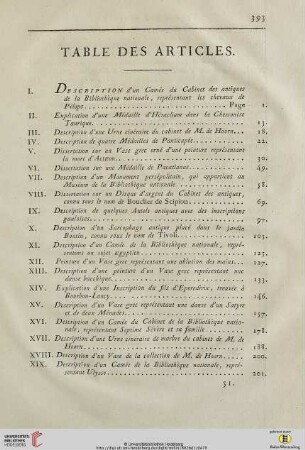 393
TABLE DES ARTICLES.
I. DESCRIPTION d'un Camée du Cabinet des antiques
de la Bibliothèque nationale, représentant les chevaux de
Pélops. Page 1.
II. Explication d'une Médaille d'Héraclium dans la Chersonèse
Taurique. 13.
III. Description d'une Urne cinéraire du cabinet de M. de Hoorn. 18.
IV. Description de quatre Médailles de Panticapée 22.
V. Dissertation sur un Vase grec orné d'une peinture représentant
la mort d'Actæon. 30.
VI. Dissertation sur une Médaille de Pescennius 49.
VII. Description d'un Monument persépolitain, qui appartient au
Muséum de la Bibliothèque nationale. 58.
VIII. Dissertation sur un Disque d'argent du Cabinet des antiques,
connu sous le nom de Bouclier de Scipion. 69.
IX. Description de quelques Autels antiques avec des inscriptions
gauloises. 97.
X. Description d'un Sarcophage antique placé dans le jardin
Boutin, connu sous le nom de Tivoli. 105.
XI. Description d'un Camée de la Bibliothèque nationale, repré-
sentant un sujet égyptien. 125.
XII. Peinture d'un Vase grec représentant une ablution des mains. 127.
XIII. Description d'une peinture d'un Vase grec représentant une
danse bacchique. 133.
XIV. Explication d'une Inscription du fils d'Eporedirix, trouvée à
Bourbon-Lancy. 146.
XV. Description d'un Vase grec représentant une danse d'un Satyre
et de deux Ménades. 157.
XVI. Description d'un Camée du Cabinet de la Bibliothèque natio-
nale, représentant Septime Sévère et sa famille. 178.
XVII. Description d'une Urne cinéraire de marbre du cabinet de M. de
Hoorn. 188.
XVIII. Description d'un Vase de la collection de M. de Hoorn. 200.
XIX. Description d'un Camée de la Bibliothèque nationale, repré-
sentant Ulysse. 201.
51.
UNIVERSITÄTS-
BIBLIOTHEK
HEIDELBERG
© Universitätsbibliothek Heidelberg
gefördert durch die